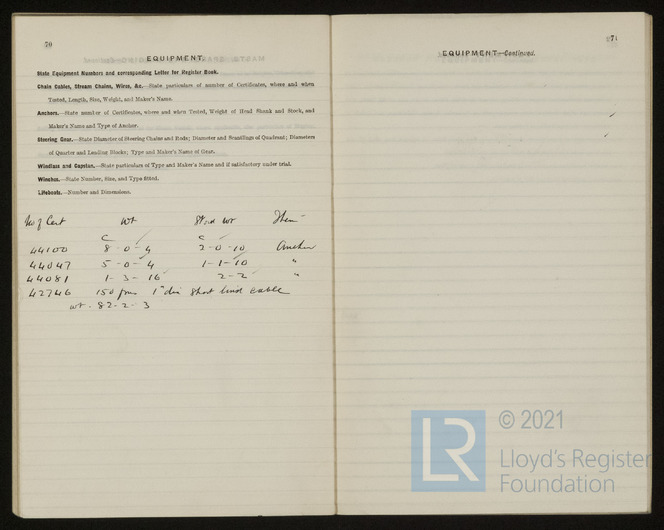 70
EQUIPMENT.
State Equipment Numbers and corresponding Letter for Register Book.
Chain Cables, Stream Chains, Wires, &c.—State particulars of number of Certificates, where and when
Tested, Length, Size, Weight, and Maker's Name.
Anchors.—State number of Certificates, where and when Tested, Weight of Head Shank and Stock, and
Maker's Name and Type of Anchor.
Steering Gear.—State Diameter of Steering Chains and Rods; Diameter and Scantlings of Quadrant; Diameters
of Quarter and Leading Blocks; Type and Maker's Name of Gear.
Windlass and Capstan.—State particulars of Type and Maker's Name and if satisfactory under trial.
Winches.—State Number, Size, and Type fitted.
Lifeboats.—Number and Dimensions.
No of Cert Wt Stock Wt Item
C C
44100 8-0-4 2-0-10 Anchor
44047 5-0-4 1-1-10 "
44081 1-3-16 2-2 "
42746 150 fms 1" dia Short Cable
wt. 82-2-3
71
EQUIPMENT—Continued.
LR
© 2021
Lloyd's Register
Foundation